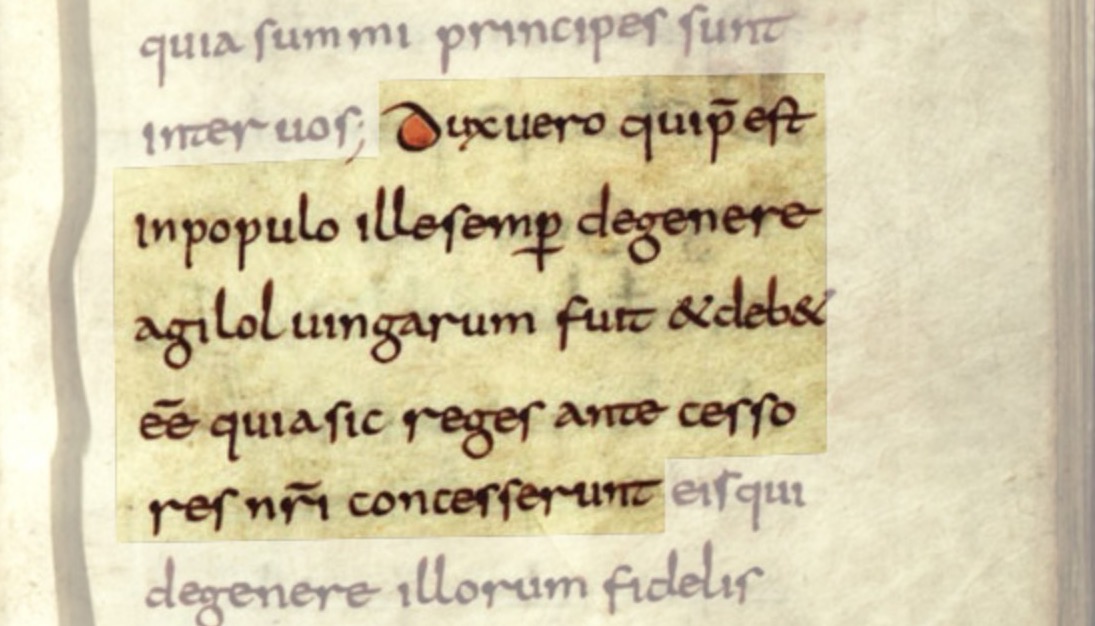 quia summi principes sunt
inter uos; Dux uero qui p̄est
in populo ille semꝑ de genere
agiloluingarum fuit & deb&
eē quia sic reges ante cesso
res nr̄i concesserunt eis qui
de genere illorum fidelis